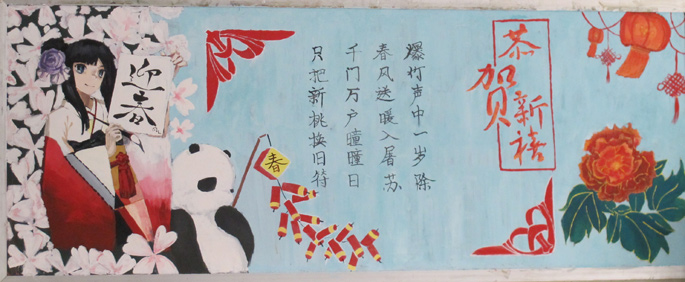 恭贺新禧
爆竹声中一岁除
春风送暖入屠苏
千门万户瞳瞳日
只把新桃换旧符
春
迎春